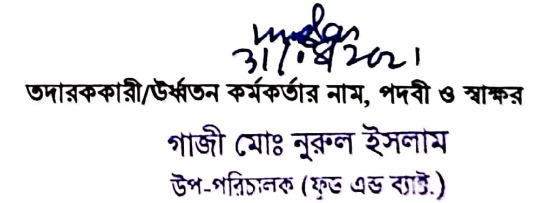 তদারককারী/উর্ধ্বতন কর্মকর্তার নাম, পদবী ও স্বাক্ষর
গাজী মোঃ নুরুল ইসলাম
উপ-পরিচালক (ফুড এন্ড ব্যাক্ট.)